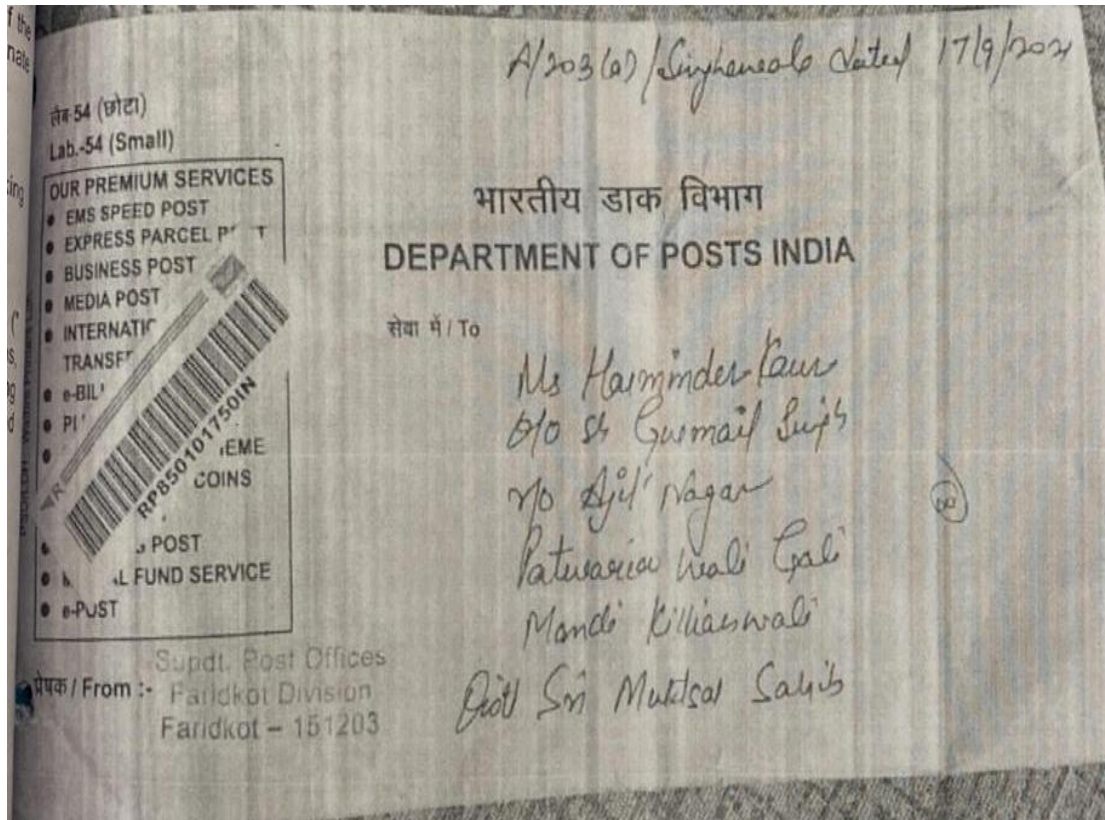 f the
nate
A/203(a)/Singhewala dated 17/9/2021
लैब-54 (छोटा)
Lab.-54 (Small)
OUR PREMIUM SERVICES
EMS SPEED POST
EXPRESS PARCEL P T
BUSINESS POST
MEDIA POST
INTERNATIO
TRANSFE
e-BIL
PL
EME
COINS
POST
L FUND SERVICE
e-POST
R
RP850101750IN
भारतीय डाक विभाग
DEPARTMENT OF POSTS INDIA
सेवा में / To
Ms Harminder Kaur
D/o Sh Gurmail Singh
r/o Ajit Nagar
Patwaria Wali Gali
Mandi Killianwali
Distt Sri Muktsar Sahib
प्रेषक / From :-
Supdt. Post Offices
Faridkot Division
Faridkot – 151203